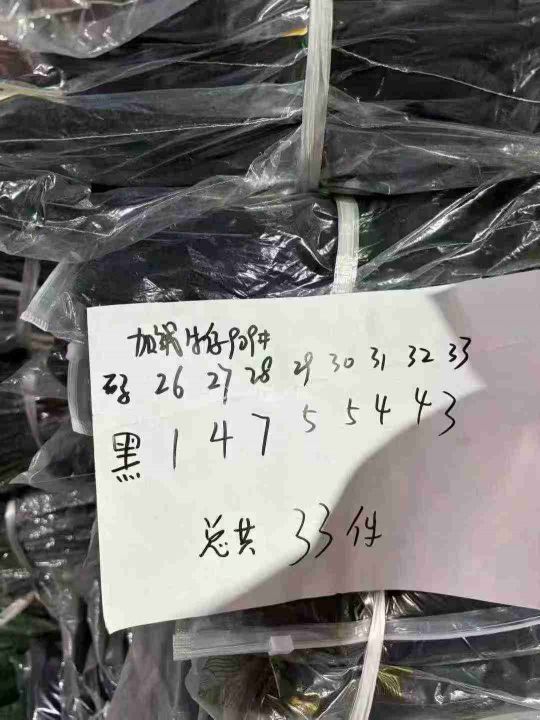 加绒牛仔909#
码 26 27 28 29 30 31 32 33
黑 1 4 7 5 5 4 4 3
总共 33件